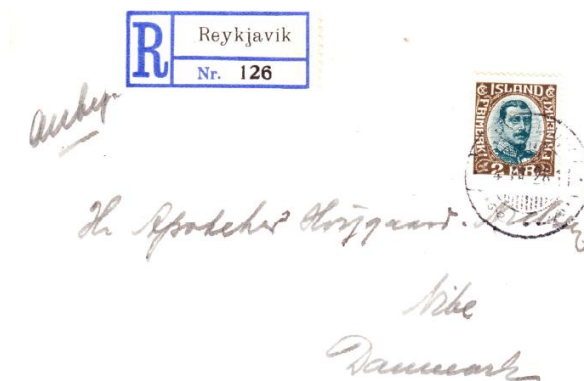 R
Reykjavik
Nr. 126
Anbef.
ISLAND
FRIMERKI
2 KR.
Hr Apotheker
Nibe
Danmark